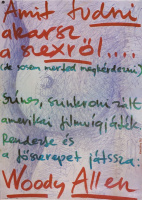 Amit tudni
akarsz
a szexről....
(de sosem merted megkérdezni)
Színes, szinkronizált
amerikai filmvígjáték.
Rendezte és
a főszerepet játssza:
Woody Allen